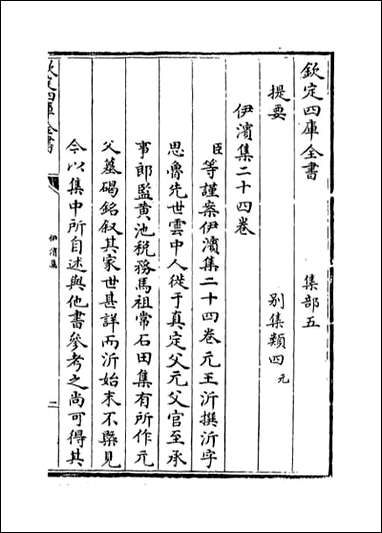 欽定四庫全書
集部五
提要
別集類四 元
伊濱集二十四卷
臣等謹案伊濱集二十四卷元王沂撰沂字
思魯先世雲中人徙于真定父元父官至承
事郎監黃池稅務馬祖常石田集有所作元
父墓碣銘叙其家世甚詳而沂始末不槩見
今以集中所自述與他書參考之尚可得其
欽定四庫全書
伊濱集